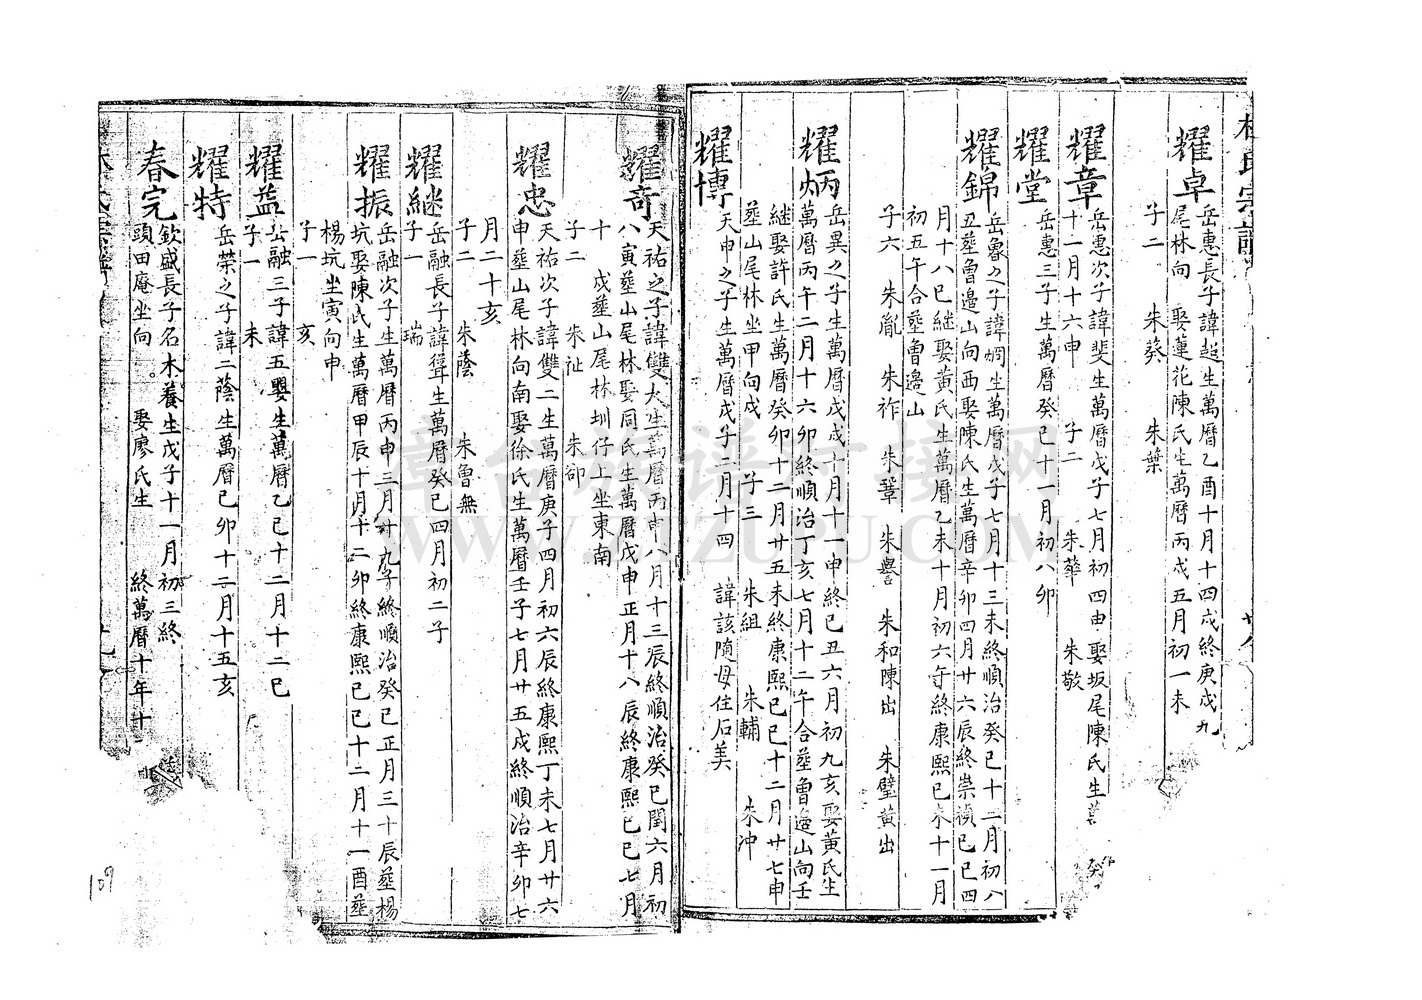 林氏宗譜
耀卓
岳惠長子諱超生萬曆乙酉十月十四戌終庚戌九
尾林向 娶蓮花陳氏生萬曆丙戌五月初一未
子二 朱葵 朱葉
耀章
岳惠次子諱斐生萬曆戊子七月初四由娶坂尾陳氏生萬
十一月十六申 子二 朱華 朱敬
耀堂
岳惠三子生萬曆癸巳十一月初八卯
耀錦
岳象之子諱烱生萬曆戊子七月十三未終順治癸巳十二月初八
丑塟曾邉山向酉娶陳氏生萬曆辛卯四月廿六辰終崇禎己巳四
月十八巳継娶黃氏生萬曆乙未十月初六午終康熙己未十一月
初五午合塟曾邉山
子六 朱胤 朱祚 朱葦 朱譽 朱和陳出 朱璧黃出
耀炳
岳異之子生萬曆戊戌十月十一申終己丑六月初九亥娶黃氏生
萬曆丙午二月十六卯終順治丁亥七月十二午合塟曾邉山向壬
継娶許氏生萬曆癸卯十二月廿五未終康熙己巳十二月廿七申
塟山尾林坐甲向戌 子三 朱組 朱輔 朱冲
耀博
天申之子生萬曆戊子二月十四 諱該隨母住石美
耀奇
天祐之子諱雙大生萬曆丙申八月十三辰終順治癸巳閏六月初
八寅塟山尾林娶同氏生萬曆戊申正月十八辰終康熙己巳七月
十 戌塟山尾林圳仔上坐東南
子二 朱祉 朱卻
耀忠
天祐次子諱雙二生萬曆庚子四月初六辰終康熙丁未七月廿六
申塟山尾林向南娶徐氏生萬曆壬子七月廿五戌終順治辛卯七
月二十亥
子二 朱蔭 朱魯無
耀継
岳融長子諱聳生萬曆癸巳四月初二子
子一 瑞
耀振
岳融次子生萬曆丙申三月廿九子終順治癸巳正月三十辰塟楊
坑娶陳氏生萬曆甲辰十月十二卯終康熙己巳十二月十一酉塟
楊坑坐寅向申
子一 亥
耀益
岳融三子諱五嬰生萬曆乙巳十二月十二巳
子一 未
耀特
岳榮之子諱二蔭生萬曆己卯十二月十五亥
春完
欽盛長子名木養生戊子十一月初三終
頭田庵坐向。 娶廖氏生 終萬曆十年十二
林氏宗譜
109
章台族谱对接网
WWW.ZTZUPU.COM